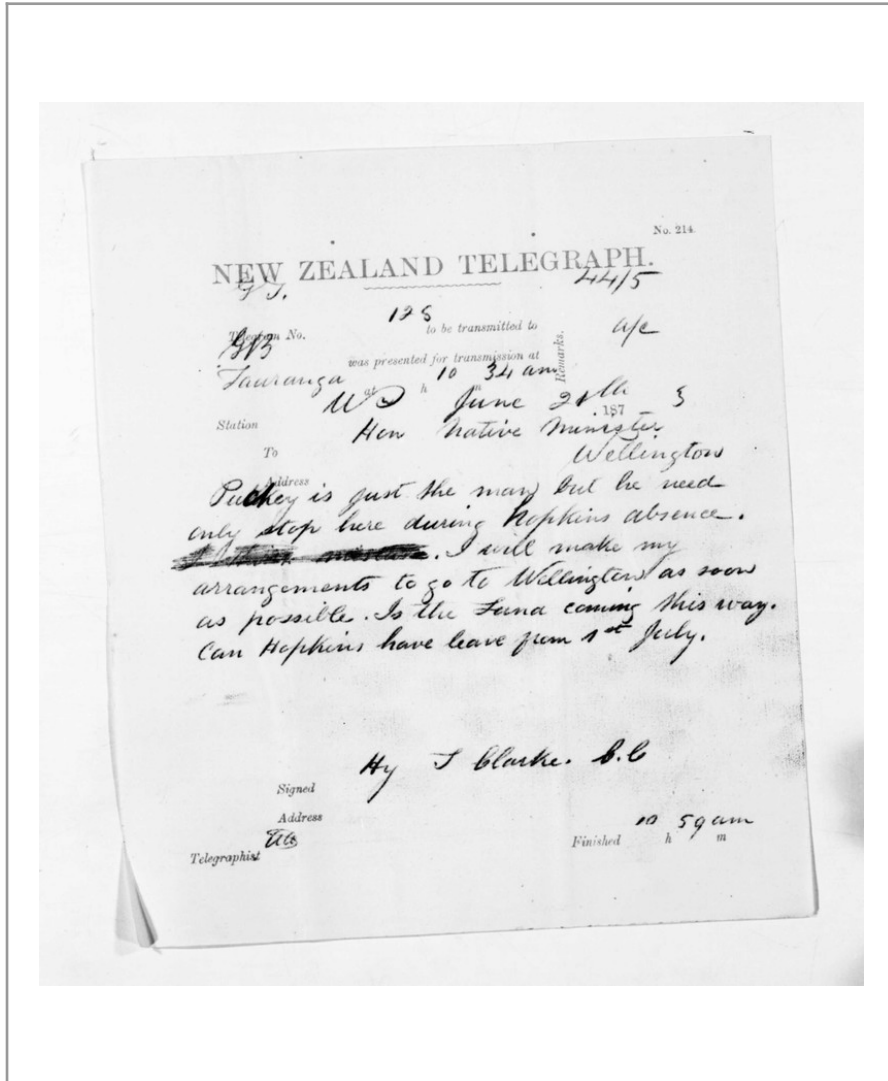 No. 214.
NEW ZEALAND TELEGRAPH.
44/5
Telegram No. 125 to be transmitted to
a/c
Remarks.
was presented for transmission at
Tauranga at 10 h 34 m am
June 187 3
Station
To Hon Native Minister
Wellington
Address
Puckey is just the man but he need
only stop here during Hopkins absence.
I will make my
arrangements to go to Wellington as soon
as possible. Is the Luna coming this way.
Can Hopkins have leave from 1st July.
Signed Hy T Clarke. C.C
Address
Telegraphist
Finished 10 h 59 m am